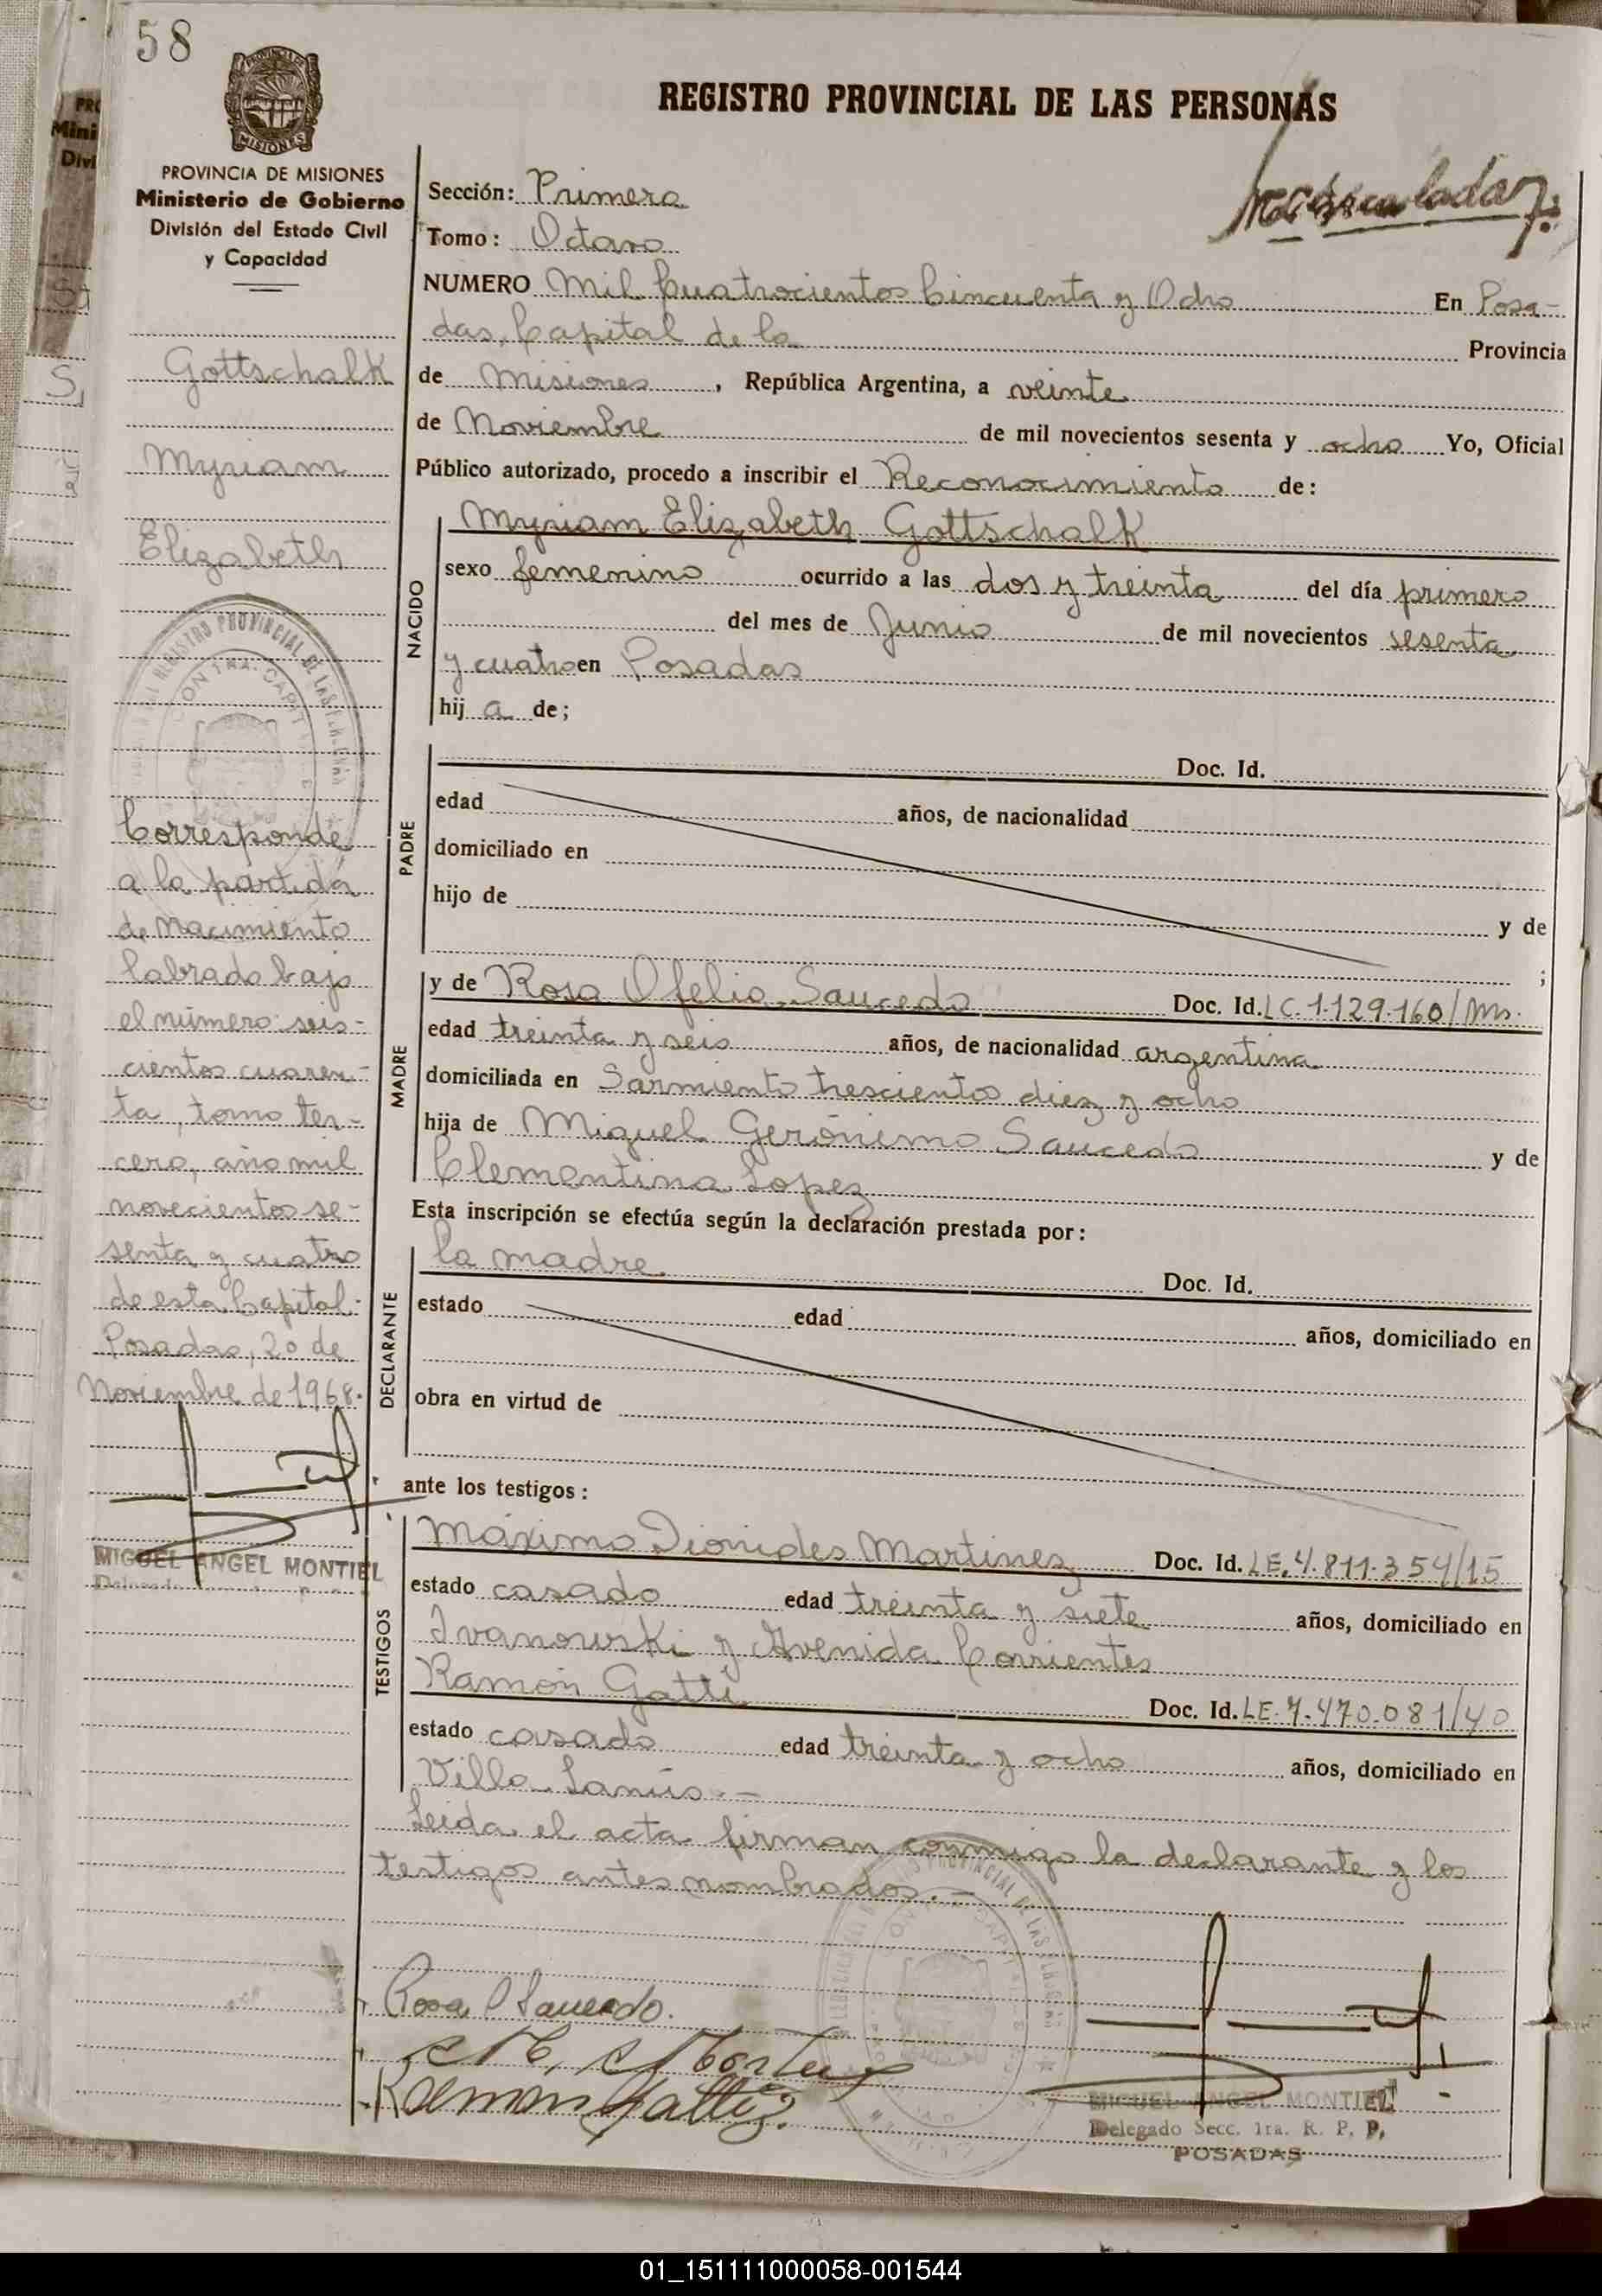 58
REGISTRO PROVINCIAL DE LAS PERSONAS
PROVINCIA DE MISIONES
Ministerio de Gobierno
División del Estado Civil
y Capacidad
Sección: Primera
Tomo: Octavo
NUMERO Mil Cuatrocientos Cincuenta y Ocho En Posa-
das, Capital de la Provincia
de Misiones, República Argentina, a veinte
de Noviembre de mil novecientos sesenta y ocho Yo, Oficial
Público autorizado, procedo a inscribir el Reconocimiento de:
Gottschalk
Myriam
Elizabeth
NACIDO
Myriam Elizabeth Gottschalk
sexo femenino ocurrido a las dos y treinta del día primero
del mes de Junio de mil novecientos sesenta
y cuatro en Posadas
hij a de;
PADRE
Doc. Id.
edad años, de nacionalidad
domiciliado en
hijo de y de
;
Corresponde
a la partida
de Nacimiento
labrado bajo
el número seis-
cientos cuaren-
ta, tomo ter-
cero, año mil
novecientos se-
senta y cuatro
de esta Capital.
Posadas, 20 de
Noviembre de 1968.
MIGUEL ANGEL MONTIEL
MADRE
y de Rosa Ofelia Saucedo Doc. Id. LC. 1.129.160/Ms.
edad treinta y seis años, de nacionalidad argentina
domiciliada en Sarmiento trescientos diez y ocho
hija de Miguel Gerónimo Saucedo y de
Clementina Lopez
Esta inscripción se efectúa según la declaración prestada por:
DECLARANTE
la madre Doc. Id.
estado edad años, domiciliado en
obra en virtud de
ante los testigos:
TESTIGOS
Máximo Dionides Martinez Doc. Id. LE. 4.811.354/15
estado casado edad treinta y siete años, domiciliado en
Ivanowski y Avenida Corrientes
Ramón Gatti Doc. Id. LE. 7.470.081/40
estado casado edad treinta y ocho años, domiciliado en
Villa Lanús.-
Leida el acta firman conmigo la declarante y los
testigos antes nombrados.-
Rosa O Saucedo.
Ramon Gatti
MIGUEL ANGEL MONTIEL
Delegado Secc. 1ra. R. P. P.
POSADAS
01_151111000058-001544